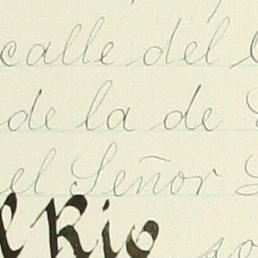 calle del
de la de
el Señor
Rio